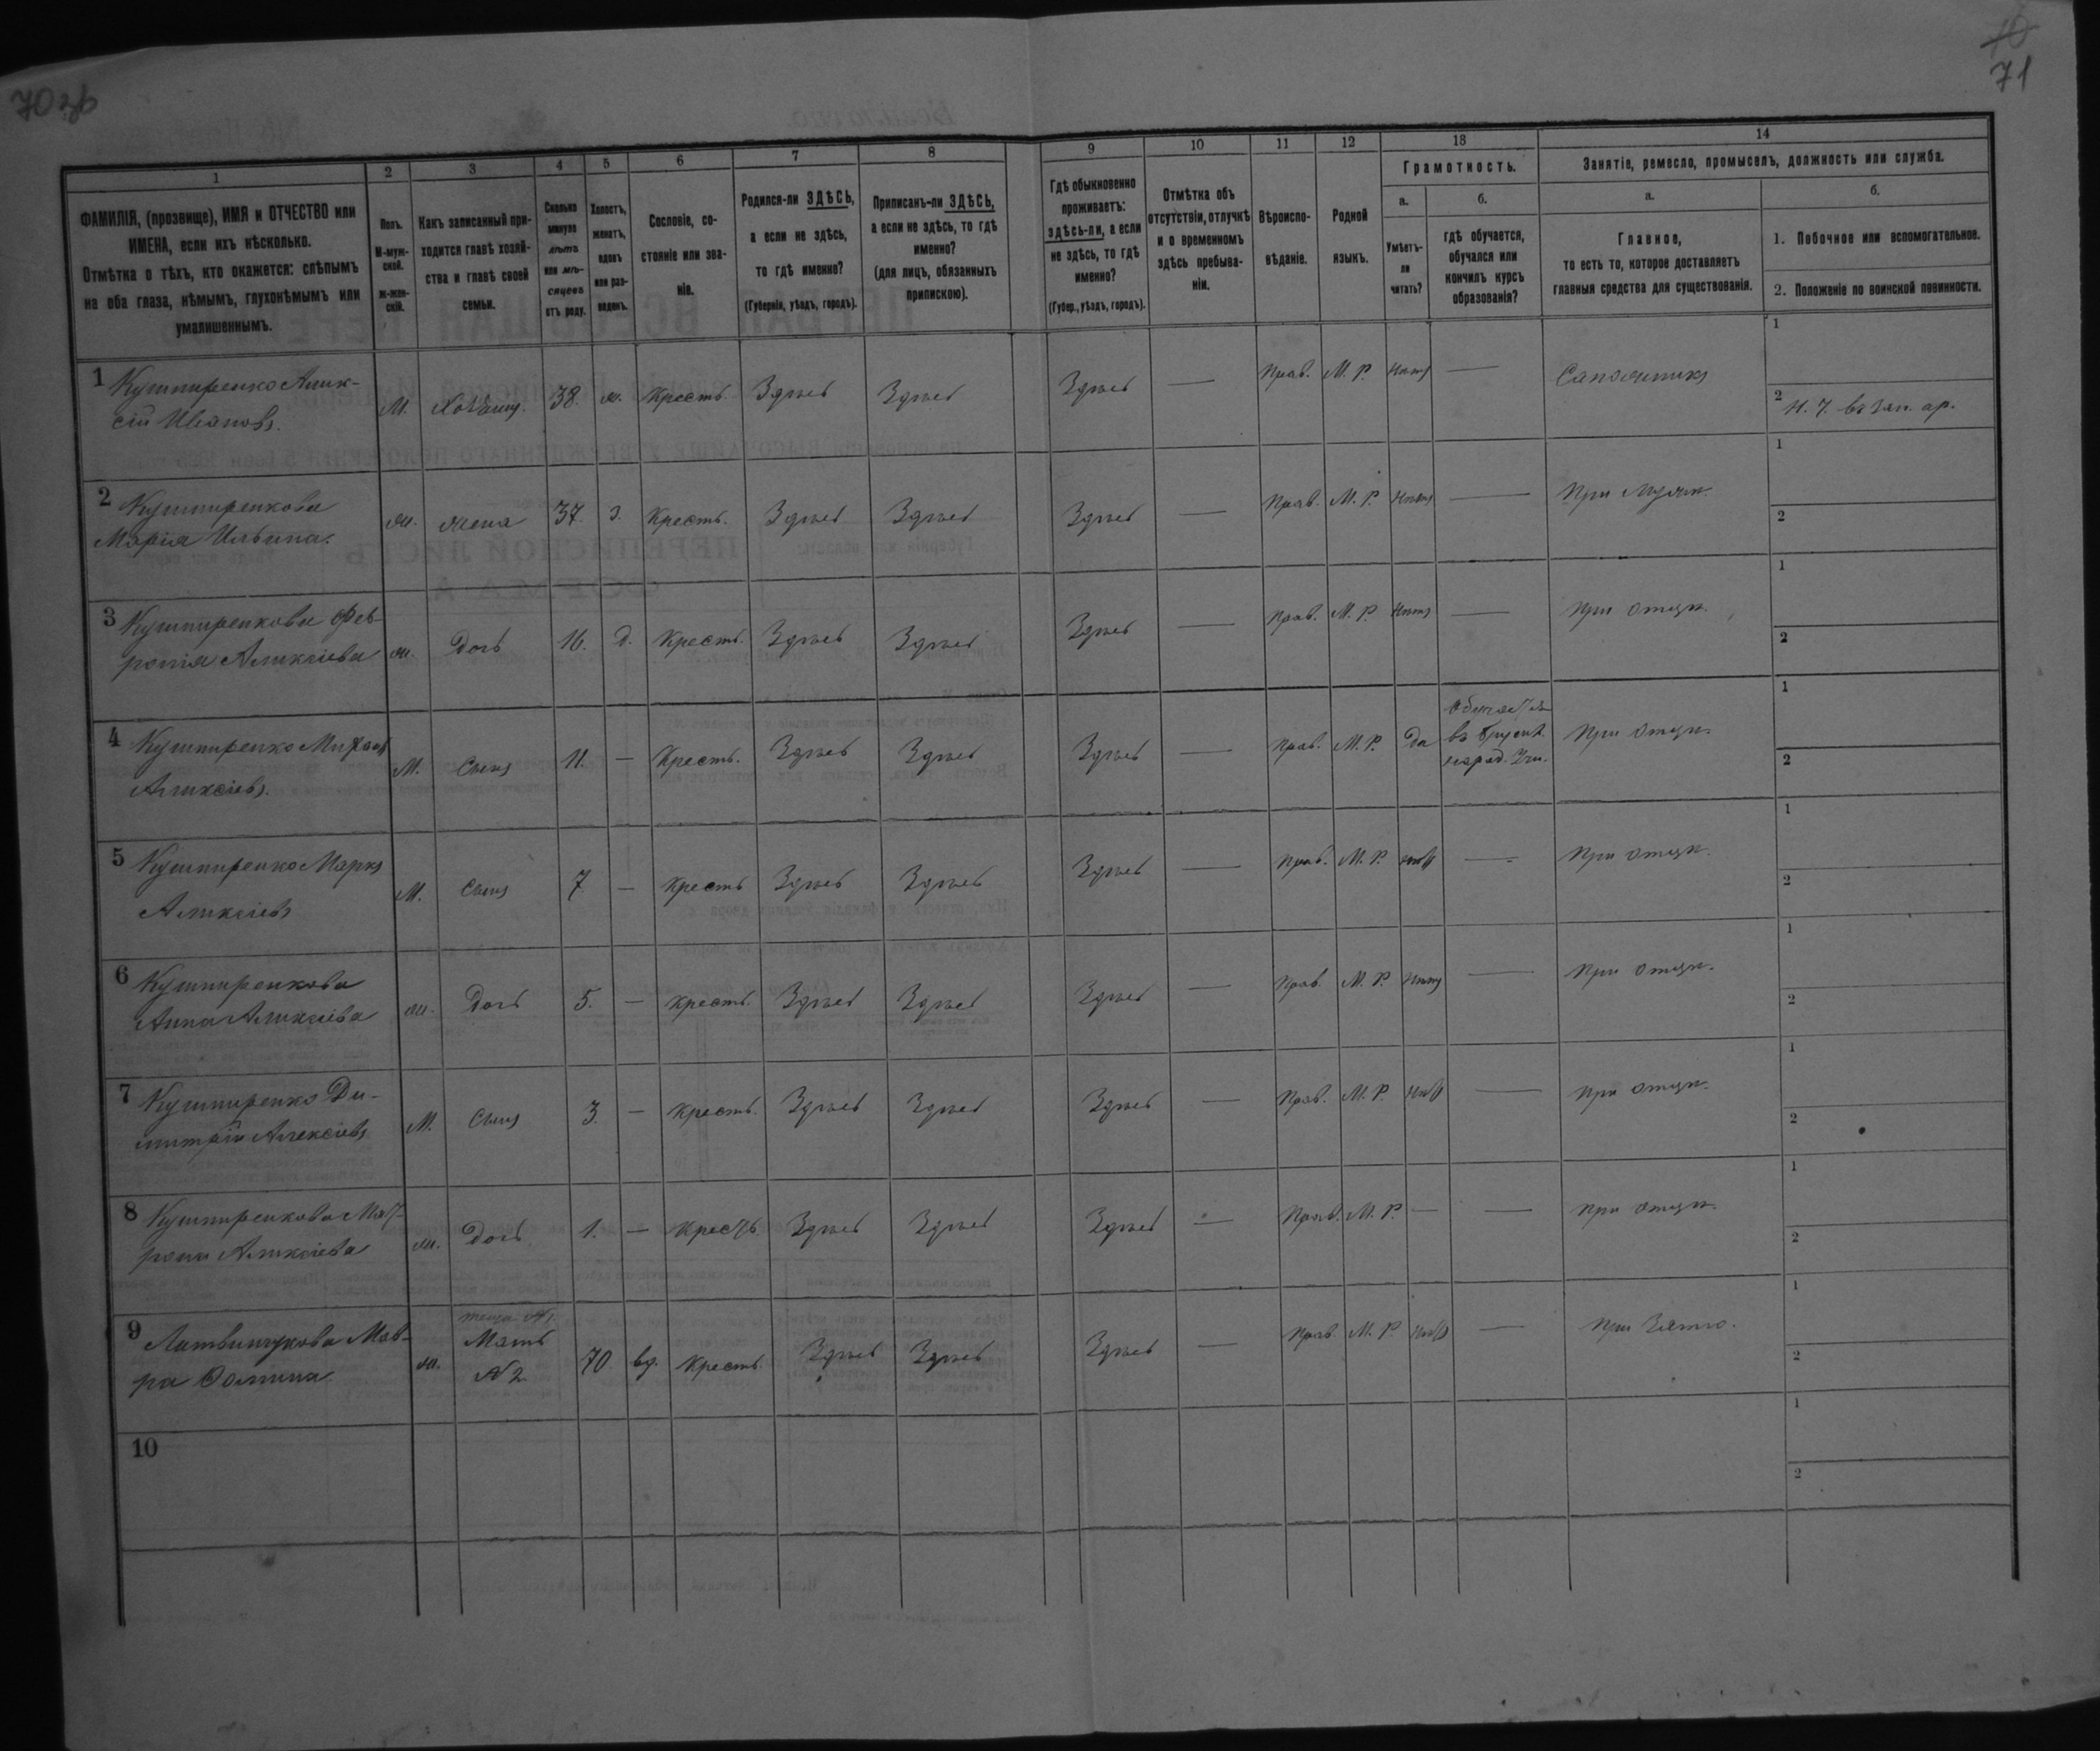 70
71
1
2
3
4
5
6
7
8
9
10
11
12
13
14
ФАМИЛІЯ, (прозвище), ИМЯ и ОТЧЕСТВО или
ИМЕНА, если ихъ нѣсколько.
Отмѣтка о тѣхъ, кто окажется: слѣпымъ
на оба глаза, нѣмымъ, глухонѣмымъ или
умалишеннымъ.
Полъ.
М-муж-
ской.
ж-жен-
скій.
Какъ записанный при-
ходится главѣ хозяй-
ства и главѣ своей
семьи.
Сколько
минуло
лѣтъ
или мѣ-
сяцевъ
отъ роду.
Холостъ,
женатъ,
вдовъ
или раз-
веденъ.
Сословіе, со-
стояніе или зва-
ніе.
Родился-ли ЗДѢСЬ,
а если не здѣсь,
то гдѣ именно?
(Губернія, уѣздъ, городъ).
Приписанъ-ли ЗДѢСЬ,
а если не здѣсь, то гдѣ
именно?
(для лицъ, обязанныхъ
припискою).
Гдѣ обыкновенно
проживаетъ:
здѣсь-ли, а если
не здѣсь, то гдѣ
именно?
(Губер., уѣздъ, городъ).
Отмѣтка объ
отсутствіи, отлучкѣ
и о временномъ
здѣсь пребыва-
ніи.
Вѣроиспо-
вѣданіе.
Родной
языкъ.
Грамотность.
а.
Умѣетъ-
ли
читать?
б.
гдѣ обучается,
обучался или
кончилъ курсъ
образованія?
Занятіе, ремесло, промыселъ, должность или служба.
а.
Главное,
то есть то, которое доставляетъ
главныя средства для существованія.
б.
1. Побочное или вспомогательное.
2. Положеніе по воинской повинности.
1 Кушниренко Алик-
сій Ивановъ. М. Хозяинъ. 38. ж. Крестъ. Здѣсь Здѣсь Здѣсь — Прав. М. Р. Нѣтъ — Сапожникъ 1
2
2 Кушниренкова
Марія Ильина. ж. жена 37. З. Крестъ. Здѣсь Здѣсь Здѣсь — Прав. М. Р. Нѣтъ — При мужѣ. 1
2
3 Кушниренкова Фев-
ронія Аликсіева ж. Дочь 16. д. Крестъ. Здѣсь Здѣсь Здѣсь — Прав. М. Р. Нѣтъ — при отцѣ. 1
2
4 Кушниренко
Аликсіевъ. М. Сынъ 11. — Крестъ. Здѣсь Здѣсь Здѣсь — прав. М. Р. Да
При отцѣ. 1
2
5 Кушниренко Маркъ
Аликсіевъ М. Сынъ 7 — Крестъ Здѣсь Здѣсь Здѣсь — Прав. М. Р. нѣтъ — При отцѣ. 1
2
6 Кушниренкова
Анна Аликсіева ж. Дочь 5. — крестъ. Здѣсь Здѣсь Здѣсь — Прав. М. Р. Нѣтъ — При отцѣ. 1
2
7 Кушниренко Ди-
митрій Алексіевъ М. Сынъ 3. — крестъ. Здѣсь Здѣсь Здѣсь — Прав. М. Р. Нѣтъ — при отцѣ. 1
2
8 Кушниренкова Мат-
рона Аликсіева ж. Дочь 1. — Крестъ. Здѣсь Здѣсь Здѣсь — Прав. М. Р. — — при отцѣ. 1
2
9 Литвинчукова Мав-
ра Фомина ж. теща №1
Мать
№2 70. вд. Крестъ. Здѣсь Здѣсь Здѣсь — Прав. М. Р. нѣтъ — при Зятю. 1
2
10 1
2